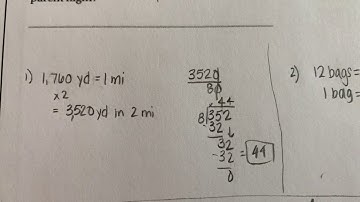 parent night?
1) 1,760 yd = 1 mi
x2
= 3,520 yd in 2 mi
3520
80
.44
8 352
32
32
-32 = 44
0
2) 12 bags=
1 bag=